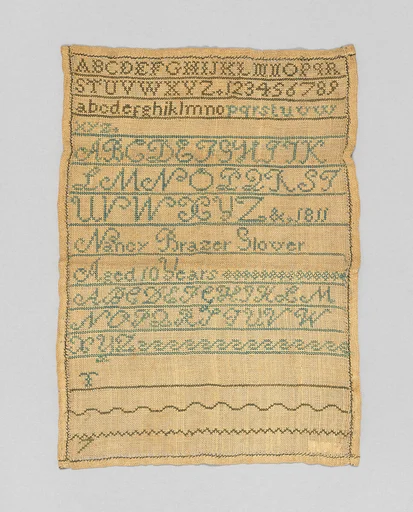 ABCDEFGHIJKLMNOPQR
STUVWXYZ.123456789
abcdefghiklmnopqrstuvwx
xyz.
ABCDEFGHIJK
LMNOPQRST
UVWXYZ.&.1811
Nancy Brazer Glover
Aged 10 Years
ABCDEFGHIKLM
NOPQRSTUVW
XYZ
T